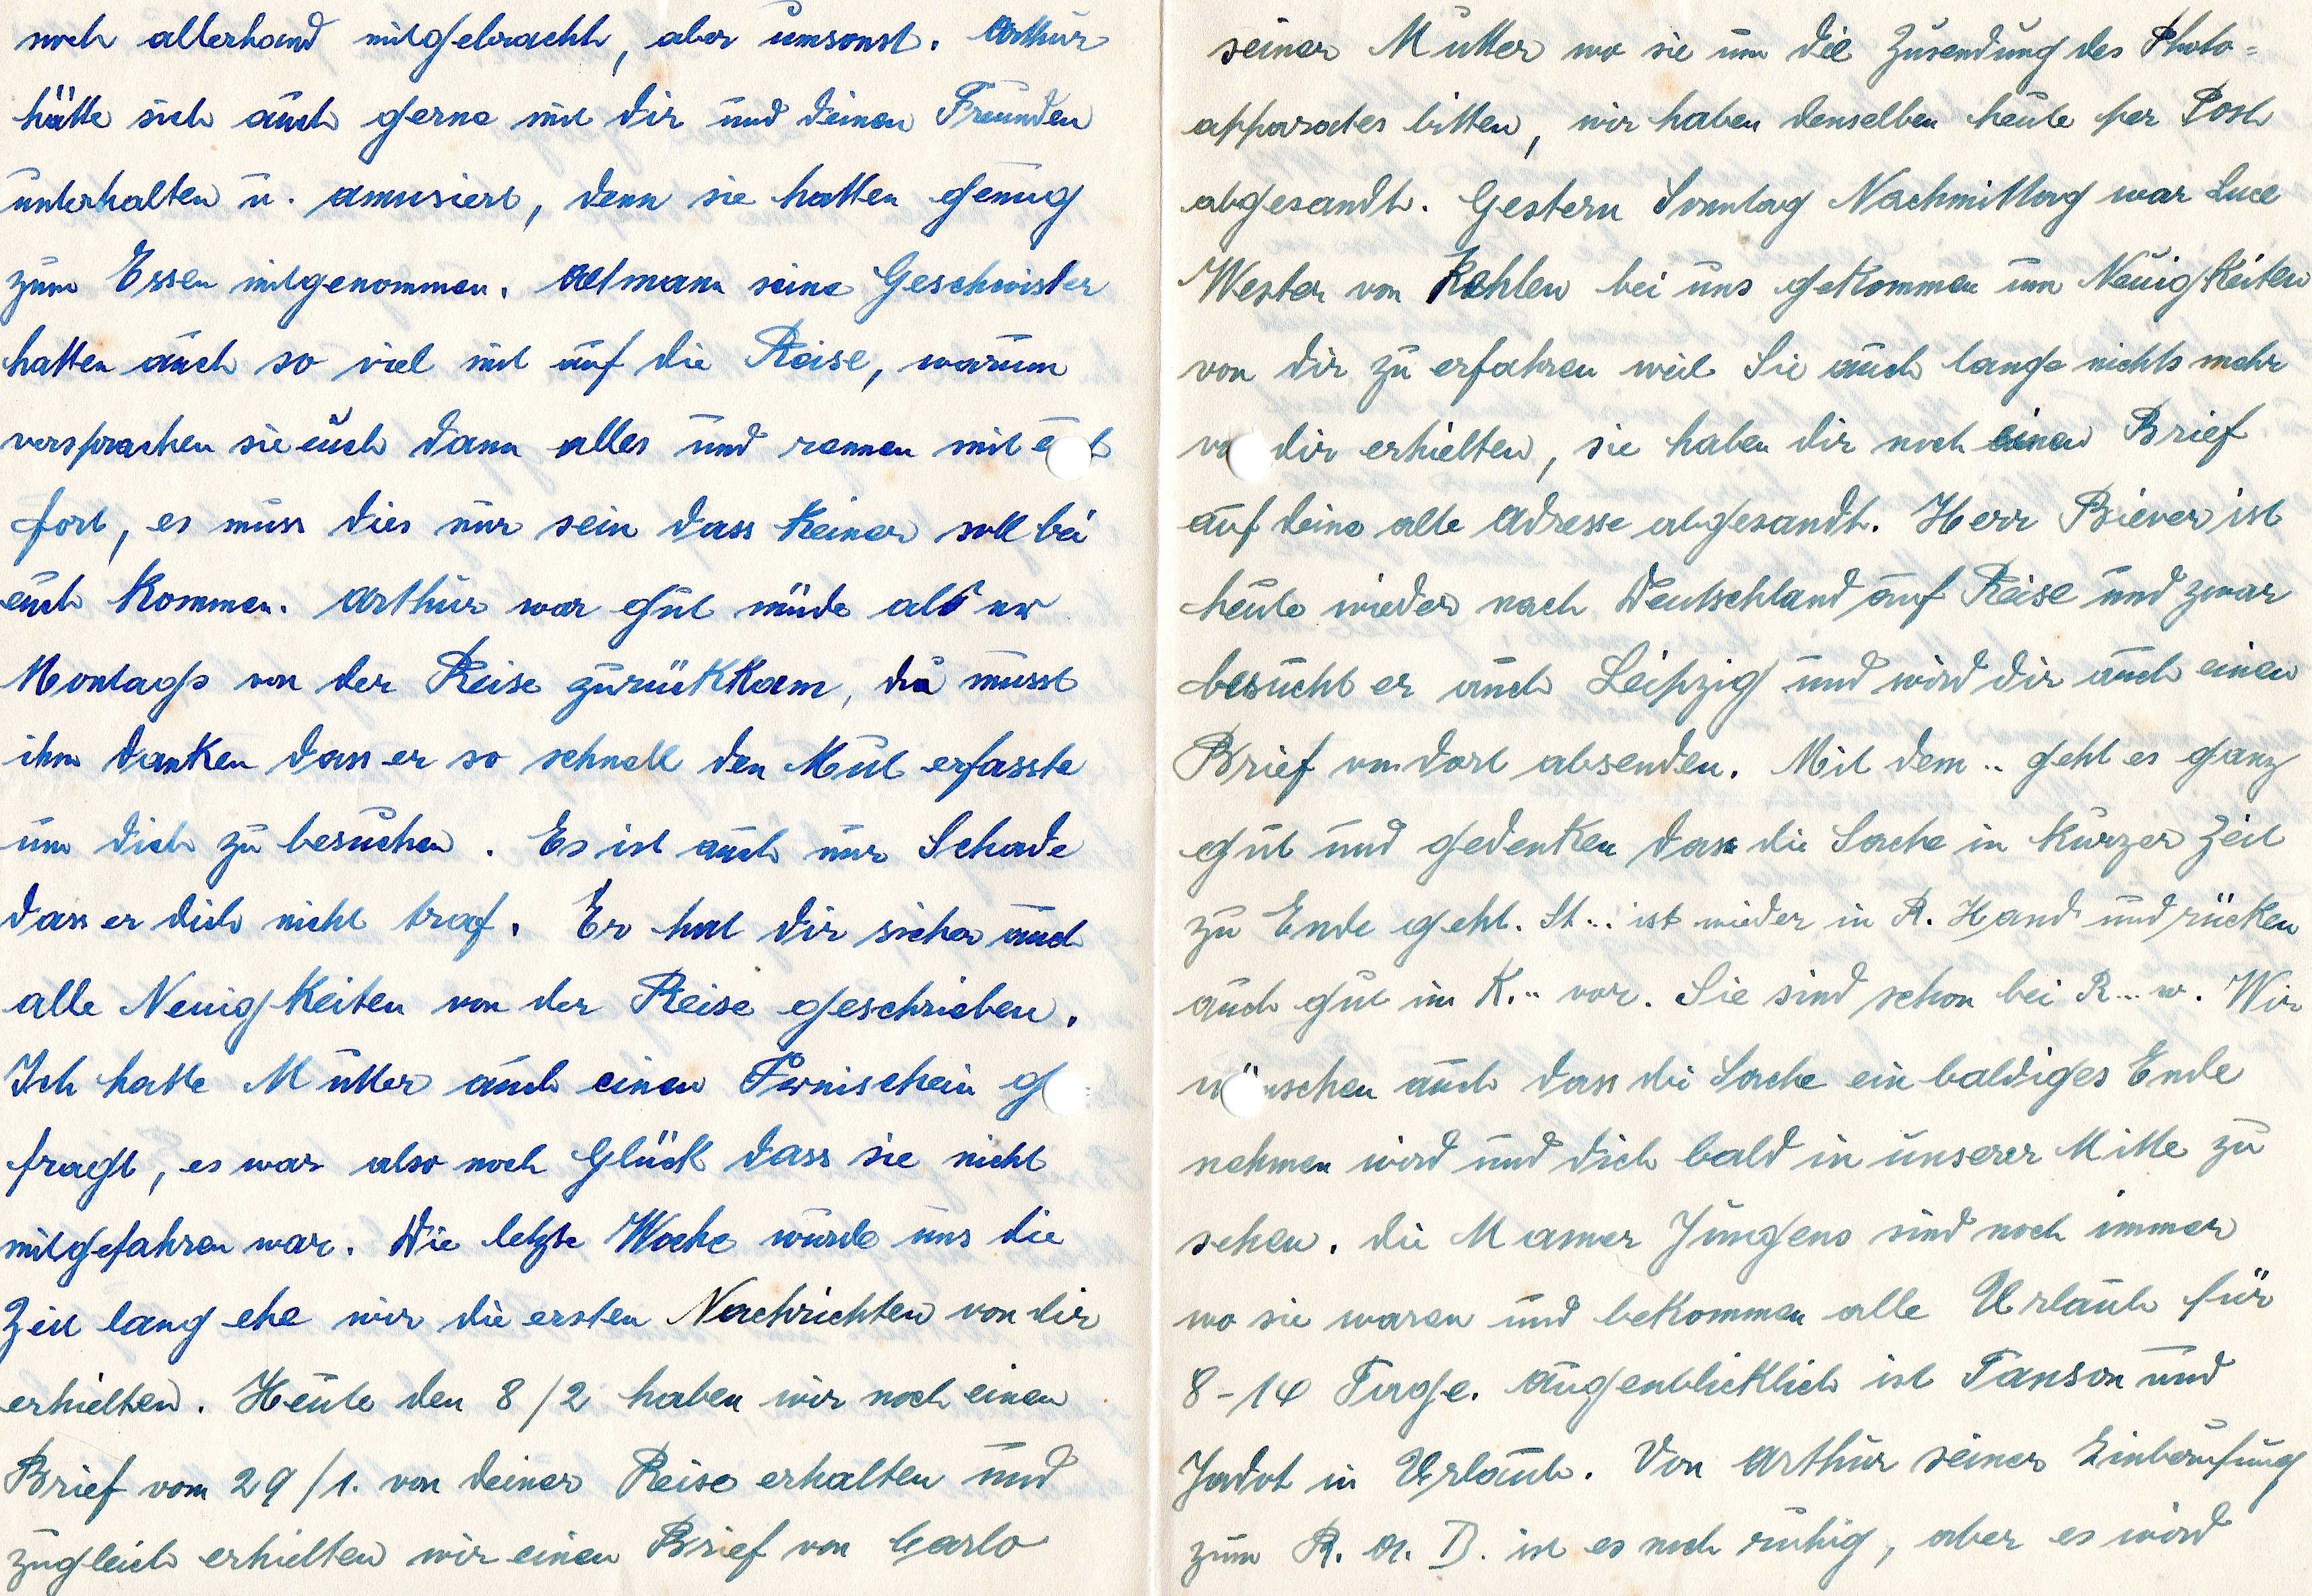 noch allerhand mitgebracht, aber umsonst. Arthur
hätte sich auch gerne mit dir und deinen Freunden
unterhalten u. amusiert, denn sie hatten genug
zum Essen mitgenommen. Altmann seine Geschwister
hatten auch so viel mit auf die Reise, warum
versprachen sie euch dann alles und rennen mit
fort, es muss dies nur sein dass keiner soll bei
euch kommen. Arthur war gut müde als er
Montags von der Reise zurückkam, du musst
ihm danken dass er so schnell den Mut erfasste
um dich zu besuchen. Es ist auch nur Schade
dass er dich nicht traf. Er hat dir sicher auch
alle Neuigkeiten von der Reise geschrieben.
Ich hatte Mutter auch einen Permischein g
fragt, es war also noch Glück dass sie nicht
mitgefahren war. Die letzte Woche wurde uns die
Zeit lang ehe wir die ersten Nachrichten von dir
erhielten. Heute den 8/2 haben wir noch einen
Brief vom 29/1. von deiner Reise erhalten und
zugleich erhielten wir einen Brief von Carlo
seiner Mutter wo sie um die Zusendung des Photo=
apparates bitten, wir haben denselben heute per Post
abgesandt. Gestern Sonntag Nachmittag war Luce
Wester von Kehlen bei uns gekommen um Neuigkeiten
von dir zu erfahren weil Sie auch lange nichts mehr
vo dir erhielten, sie haben dir noch einen Brief
auf deine alte Adresse abgesandt. Herr Biever ist
heute wieder nach Deutschland auf Reise und zwar
besucht er auch Leipzig und wird dir auch einen
Brief von dort absenden. Mit dem .. geht es ganz
gut und gedenken dass die Sache in kurzer Zeit
zu Ende geht. St... ist wieder in R. Hand und rücken
auch gut im K... vor. Sie sind schon bei R...w. Wir
wünschen auch dass die Sache ein baldiges Ende
nehmen wird und dich bald in unserer Mitte zu
sehen. Die Mamer Jungens sind noch immer
wo sie waren und bekommen alle Urlaub für
8-14 Tage. Augenblicklich ist Tanson und
Jadot in Urlaub. Von Arthur seiner Einberufung
zum R. A. D. ist es noch ruhig, aber es wird